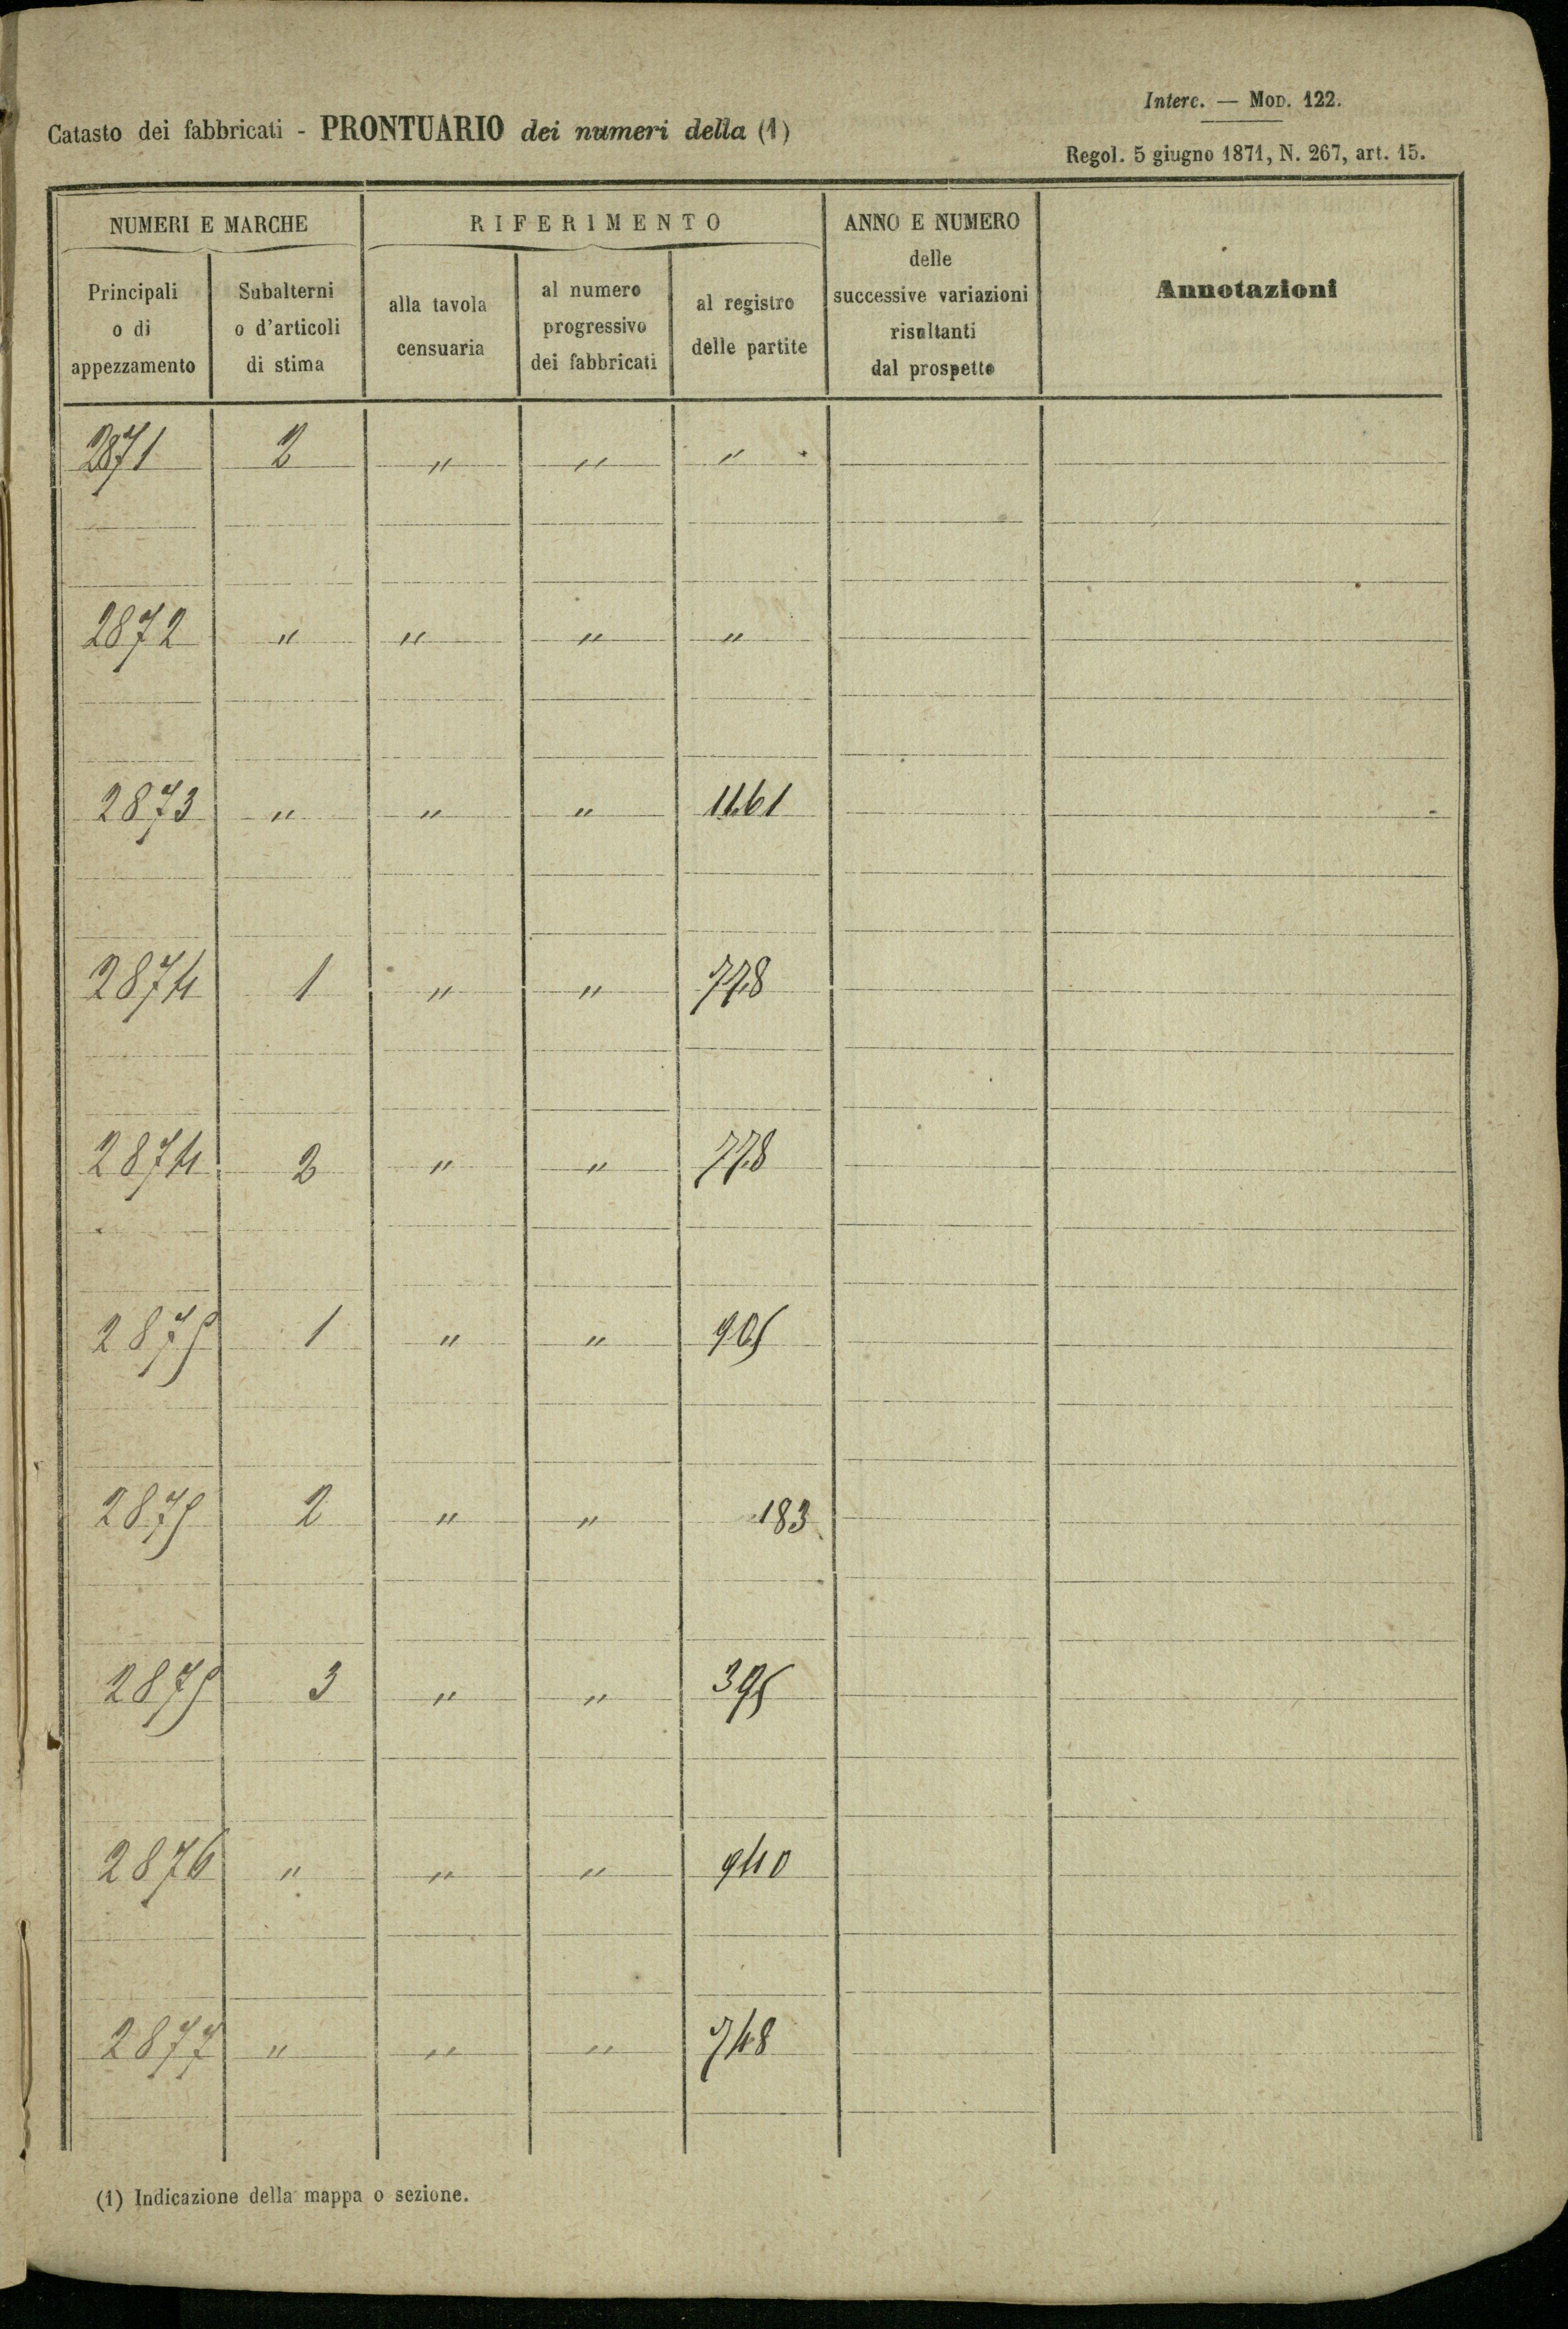 Interc. — Mod. 122.
Catasto dei fabbricati - PRONTUARIO dei numeri della (1)
Regol. 5 giugno 1871, N. 267, art. 15.
NUMERI E MARCHE
RIFERIMENTO
ANNO E NUMERO
delle
successive variazioni
risultanti
dal prospetto
Annotazioni
Principali
o di
appezzamento
Subalterni
o d'articoli
di stima
alla tavola
censuaria
al numero
progressivo
dei fabbricati
al registro
delle partite
2871 2 " " "
2872 " " " "
2873 " " " 1161
2874 1 " " 778
2874 2 " " 778
2875 1 " " 905
2875 2 " " 183
2875 3 " " 395
2876 " " " 940
2877 " " " 748
(1) Indicazione della mappa o sezione.